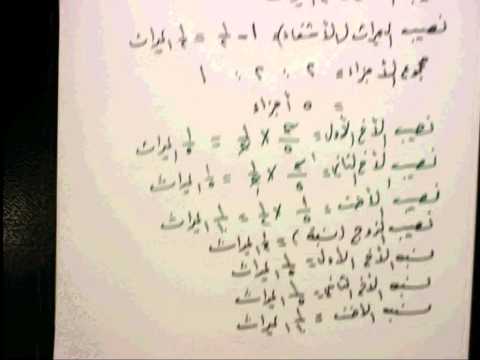 نصيب الميراث (للأشقاء) = ١ - ١/٢ = ١/٢ الميراث
مجموع الأجزاء = ٢ : ٢ : ١
= ٥ أجزاء
نصيب الأخ الأول = ٢/٥ × ١/٢ = ١/٥ الميراث
نصيب الأخ الثاني = ٢/٥ × ١/٢ = ١/٥ الميراث
نصيب الأخت = ١/٥ × ١/٢ = ١/١٠ الميراث
نصيب الزوج (نسبة) = ١/٢ الميراث
نسبة الأخ الأول = ١/٥ الميراث
نسبة الأخ الثاني = ١/٥ الميراث
نسبة الأخت = ١/١٠ الميراث